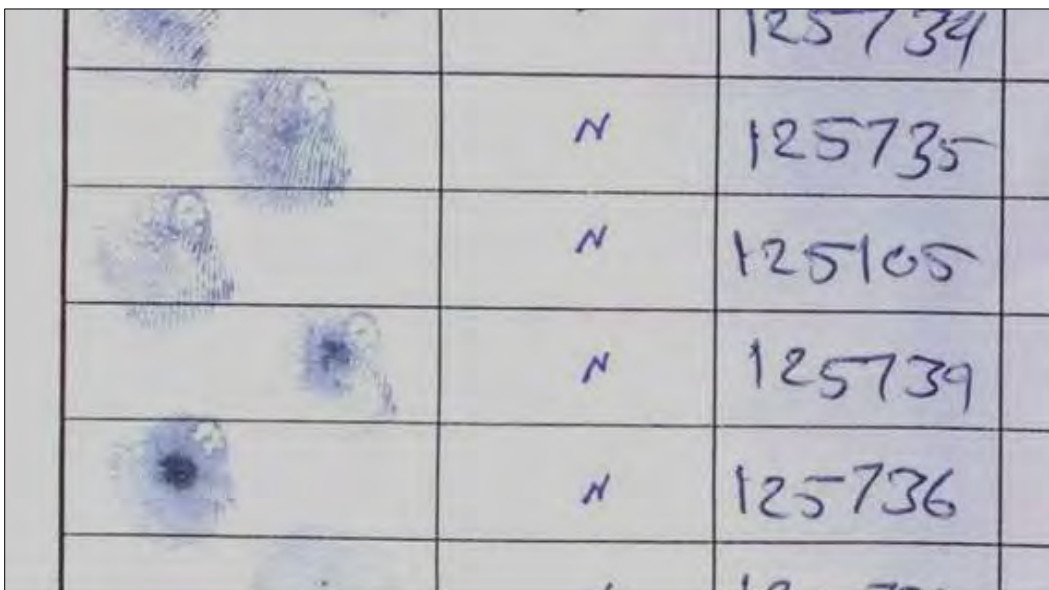 125734
N 125735
N 125105
N 125739
N 125736